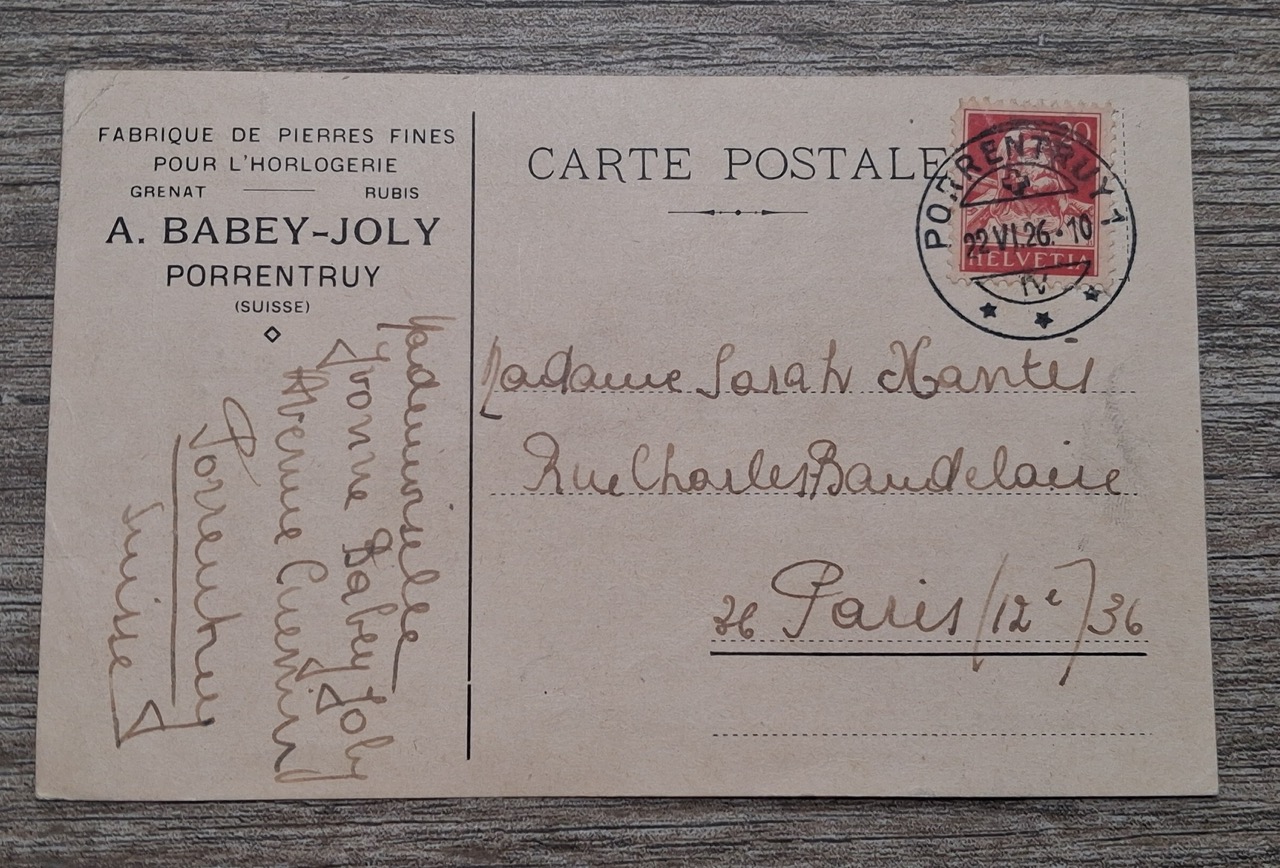 FABRIQUE DE PIERRES FINES
POUR L'HORLOGERIE
GRENAT RUBIS
A. BABEY-JOLY
PORRENTRUY
(SUISSE)
Mademoiselle
Yvonne Babey Joly
Avenue Cuenin
Porrentruy
Suisse
CARTE POSTALE
20
HELVETIA
PORRENTRUY 1
22.VI.26.-10
IV
Madame Sarah
Rue Charles Baudelaire
36 Paris (12e) 36